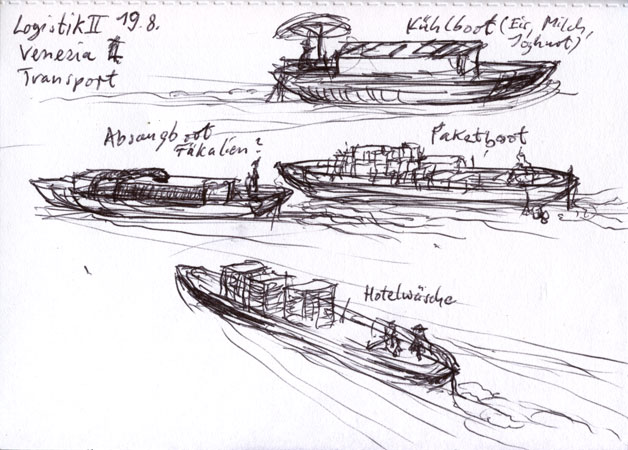 Logistik II 19.8.
Venezia II
Transport
Kühlboot (Eis, Milch,
Joghurt)
Absaugboot
Fäkalien?
Paketboot
Hotelwäsche